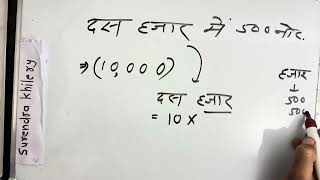 दस हजार में 500 नोट.
⇒(10,000)
दस हजार
= 10 ×
हजार
↓
500
50
Surendra Khilery